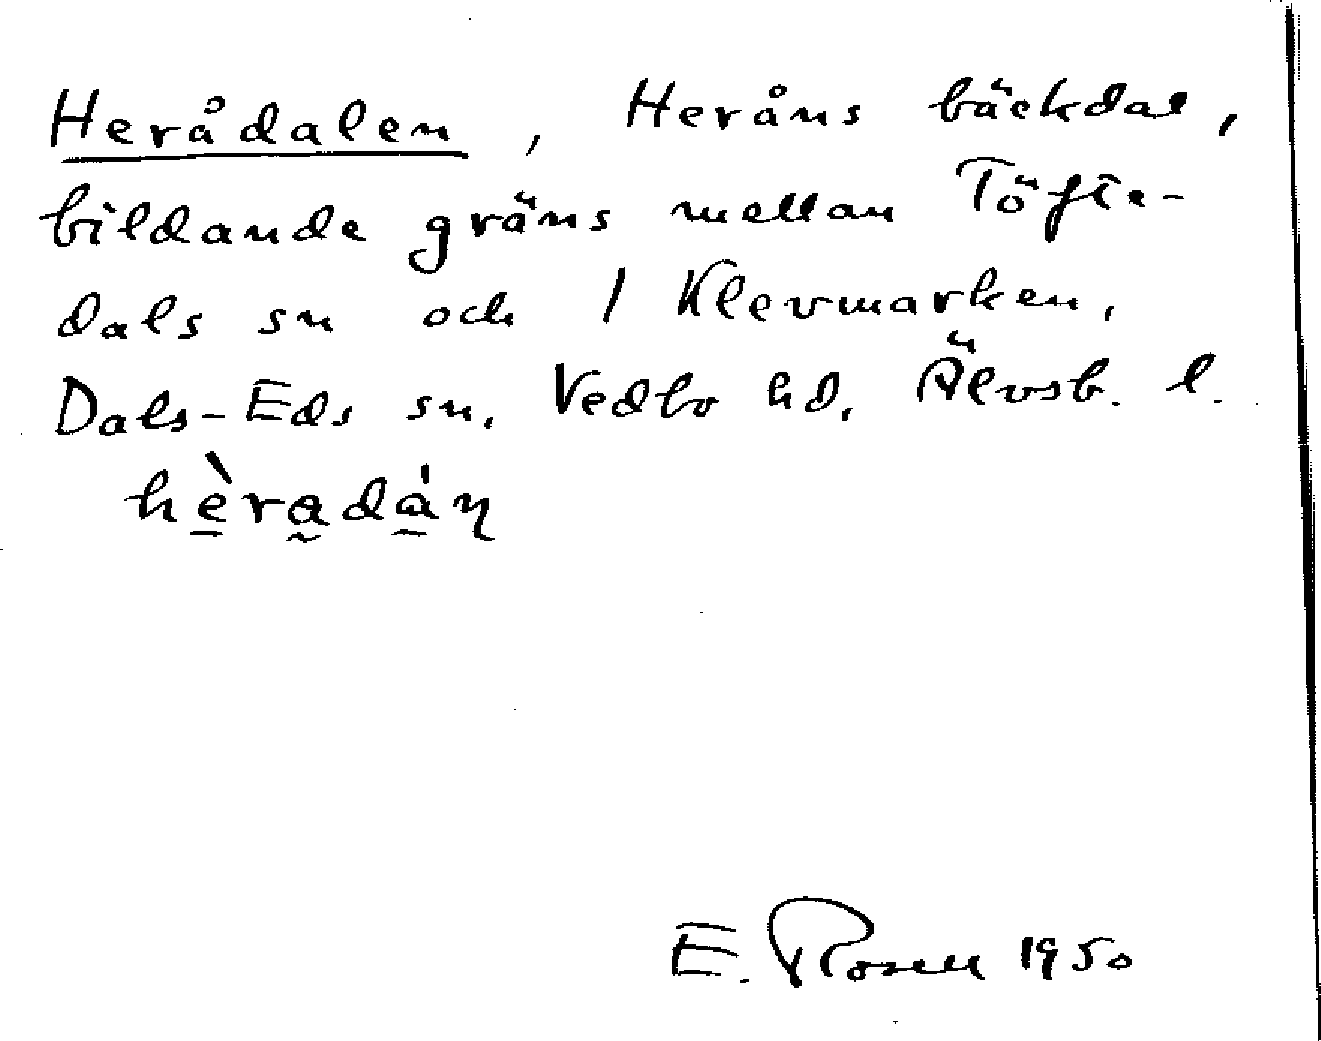 Herådalen, Heråns bäckdal,
bildande gräns mellan Töfte-
dals sn och / Klevmarken,
Dals-Eds sn, Vedbo hd, Älvsb. l.
hèradáṇ
E. Rosell 1950